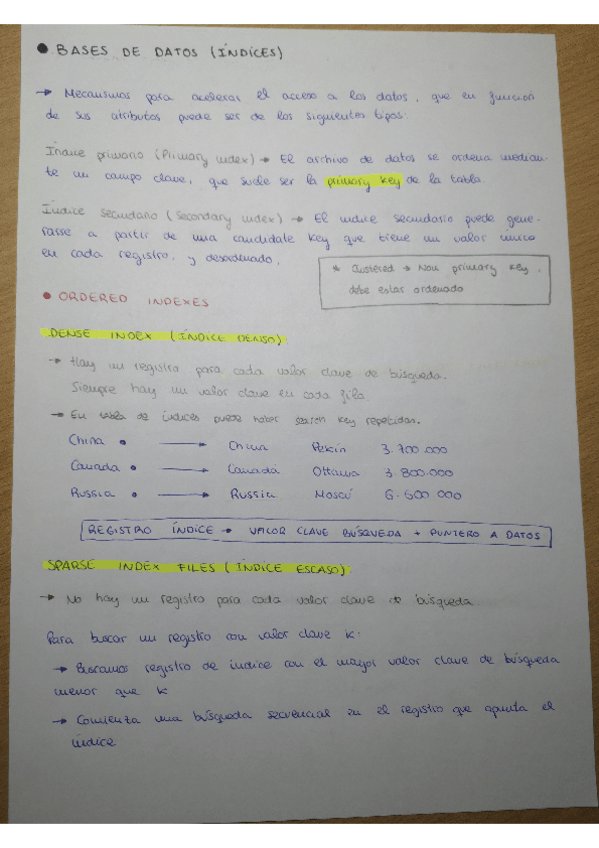 ● BASES DE DATOS (ÍNDICES)
→ Mecanismos para acelerar el acceso a los datos, que en función
de sus atributos puede ser de los siguientes tipos:
Índice primario (Primary index) → El archivo de datos se ordena median-
te un campo clave, que suele ser la primary key de la tabla.
Índice secundario (Secondary index) → El índice secundario puede gene-
rarse a partir de una candidate key que tiene un valor único
en cada registro, y desordenado.
* Clustered → Non primary key,
debe estar ordenado
● ORDERED INDEXES
DENSE INDEX (ÍNDICE DENSO)
→ Hay un registro para cada valor clave de búsqueda.
Siempre hay un valor clave en cada fila.
→ En tabla de índices puede haber search key repetidas.
China ● → China Pekín 3.700.000
Canada ● → Canadá Ottawa 3.800.000
Russia ● → Russia Moscú 6.600.000
REGISTRO ÍNDICE → VALOR CLAVE BÚSQUEDA + PUNTERO A DATOS
SPARSE INDEX FILES (ÍNDICE ESCASO)
→ No hay un registro para cada valor clave de búsqueda
Para buscar un registro con valor clave K:
→ Buscamos registro de índice con el mayor valor clave de búsqueda
menor que K
→ Comienza una búsqueda secuencial en el registro que apunta el
índice